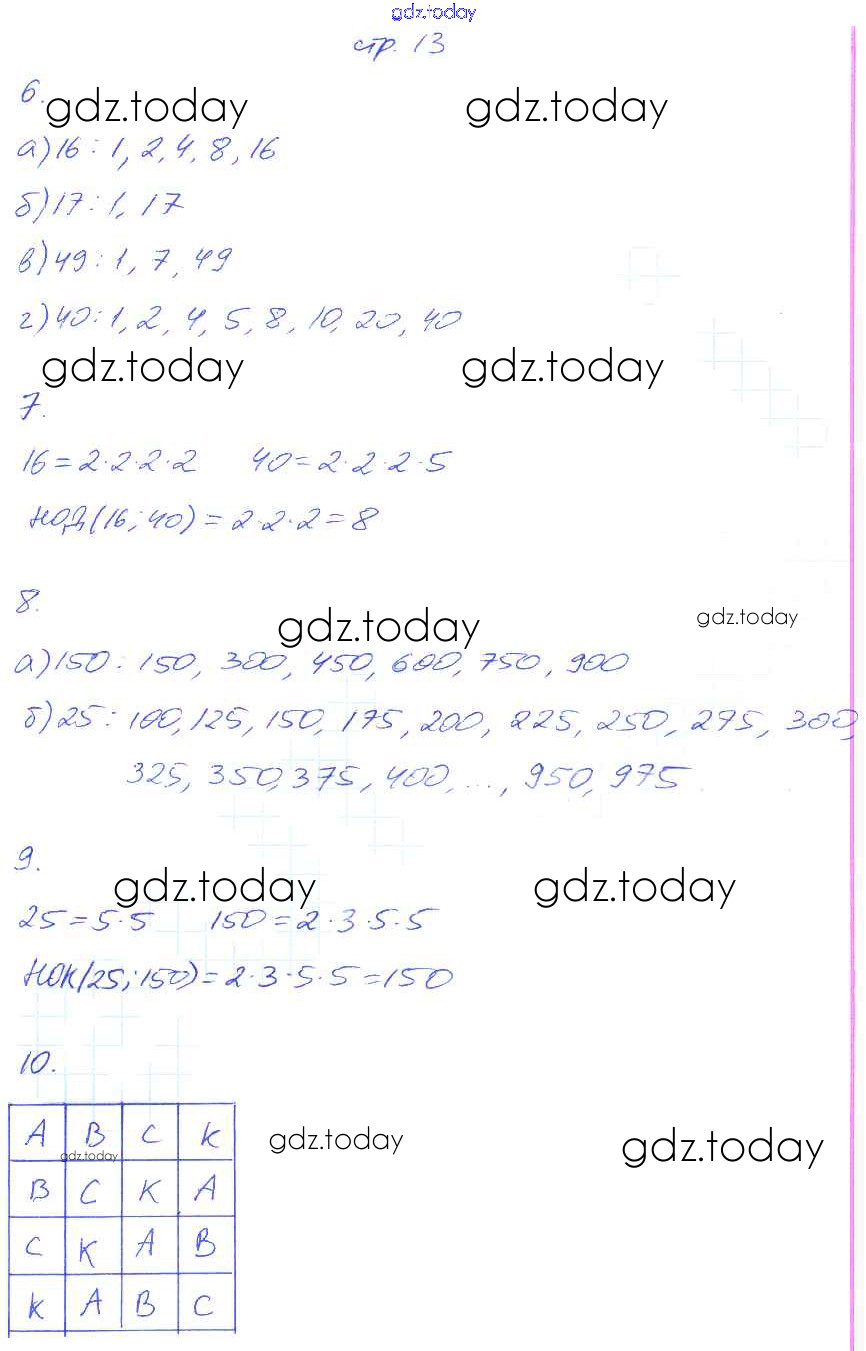 gdz.today
стр. 13
6.
gdz.today gdz.today
а) 16 : 1, 2, 4, 8, 16
б) 17 : 1, 17
в) 49 : 1, 7, 49
г) 40 : 1, 2, 4, 5, 8, 10, 20, 40
gdz.today gdz.today
7.
16 = 2·2·2·2 40 = 2·2·2·5
НОД(16; 40) = 2·2·2 = 8
8.
gdz.today gdz.today
а) 150 : 150, 300, 450, 600, 750, 900
б) 25 : 100, 125, 150, 175, 200, 225, 250, 275, 300,
325, 350, 375, 400, ..., 950, 975
9.
gdz.today gdz.today
25 = 5·5 150 = 2·3·5·5
НОК(25; 150) = 2·3·5·5 = 150
10.
A B C K
gdz.today gdz.today gdz.today
B C K A
C K A B
K A B C